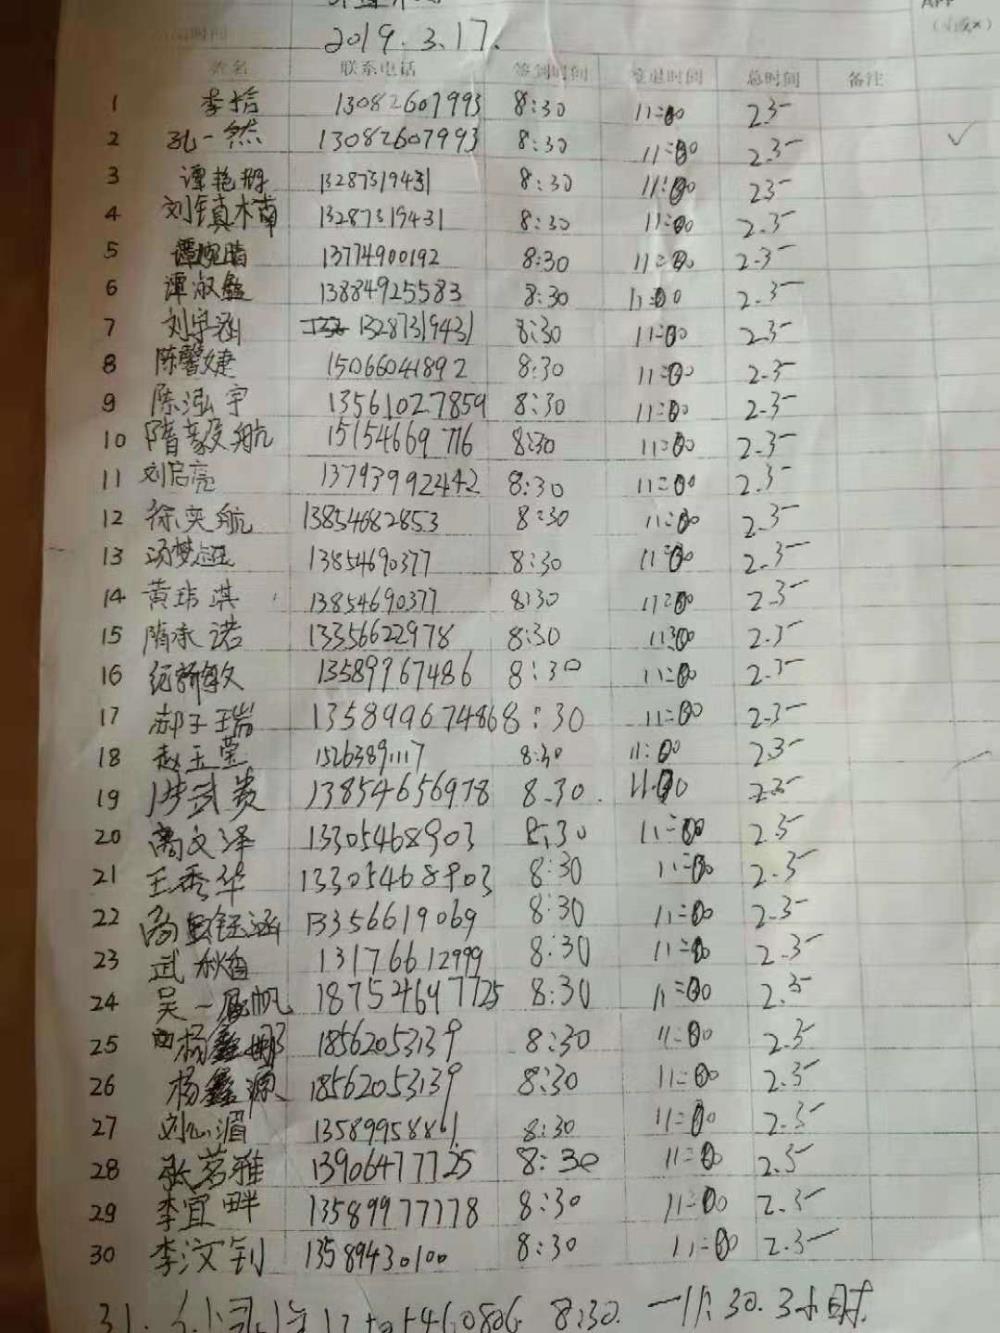 2019.3.17.
姓名 联系电话 签到时间 签退时间 总时间 备注
1 李恬 13082607993 8:30 11:00 2.5
2 孔一然 13082607993 8:30 11:00 2.5 ✓
3 谭艳 13287319431 8:30 11:00 2.5
4 刘镇楠 13287319431 8:30 11:00 2.5
5 谭婉晴 13774900192 8:30 11:00 2.5
6 谭淑 13884925583 8:30 11:00 2.5
7 刘宇涵 13287319431 8:30 11:00 2.5
8 陈馨婕 15066041892 8:30 11:00 2.5
9 陈泓宇 13561027859 8:30 11:00 2.5
10 隋毅航 15154669716 8:30 11:00 2.5
11 刘启亮 13793992442 8:30 11:00 2.5
12 徐奕航 13854682853 8:30 11:00 2.5
13 汤梦 13854690377 8:30 11:00 2.5
14 黄玮淇 13854690377 8:30 11:00 2.5
15 隋承诺 13356622978 8:30 11:00 2.5
16 纪 13589967486 8:30 11:00 2.5
17 郝子瑞 13589967486 8:30 11:00 2.5
18 赵玉莹 15263891117 8:30 11:00 2.5
19 武贵 13854656978 8.30. 11:00 2.5
20 商文泽 13305468903 8:30 11:00 2.5
21 王秀华 13305468903 8:30 11:00 2.5
22 钰涵 13356619069 8:30 11:00 2.5
23 武秋 13176612999 8:30 11:00 2.5
24 吴一帆 18752467725 8:30 11:00 2.5
25 杨鑫娜 18562053139 8:30 11:00 2.5
26 杨鑫源 18562053139 8:30 11:00 2.5
27 刘心湄 13589958861 8:30 11:00 2.5
28 张茗雅 13906477725 8:30 11:00 2.5
29 李宜畔 13589977778 8:30 11:00 2.5
30 李汶钊 13589430100 8:30 11:00 2.5
31. 8:30. 一11:30. 3小时